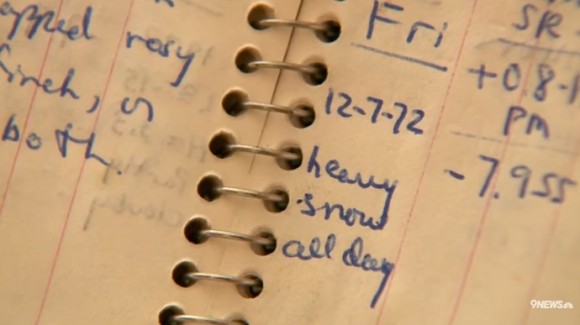 apped rosy
finch, or
both.
Fri
12-7-72
heavy
snow
all day
SR
PM
-7.955
9NEWS